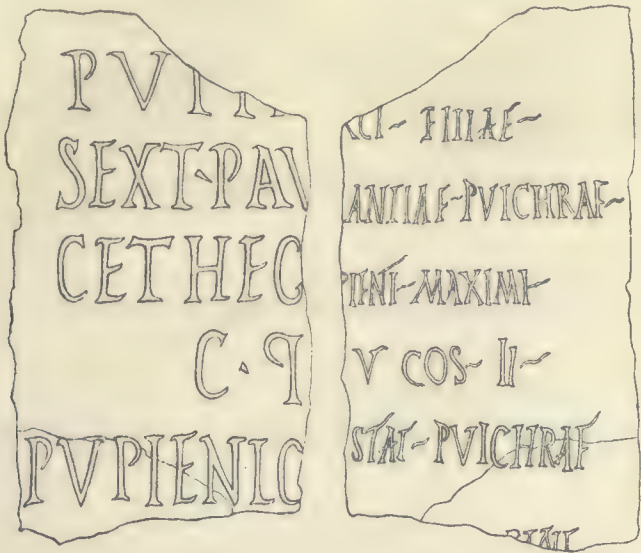 SEXT·PAV
CETHEG
C·P
PVPIENIO
RCI FILIAE
ANTIAE PVLCHRAE
PIENI MAXIMI
V COS II
STAT PVLCHRAE